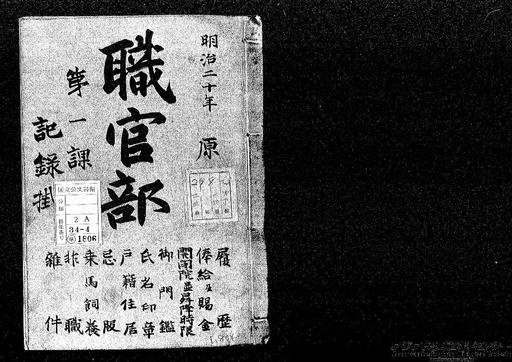 明治二十年
原
職官部
第一課
記録掛
履歴
俸給及賜金
開閉院並昇降時限
御門鑑
氏名印章
戸籍住居
忌服
乗馬飼養
非職
雑件
国立公文書館
分類
2A
34-4
1806